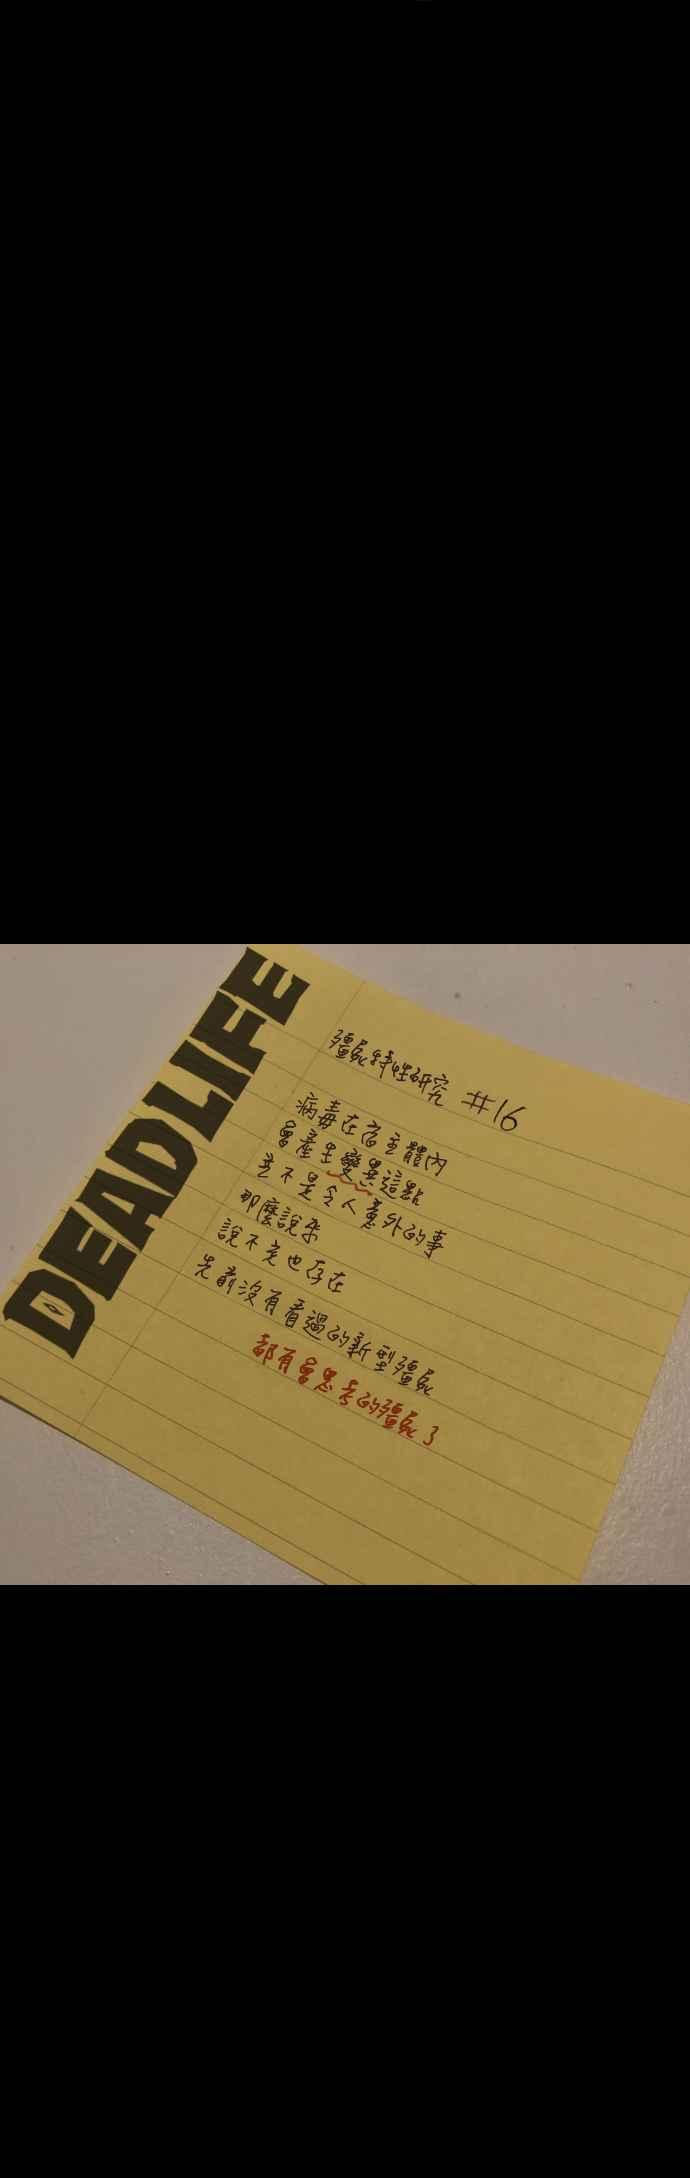 DEADLIFE
殭屍特性研究 #16
病毒在宿主體內
會產生變異這點
並不是令人意外的事
那麼說來
說不定也存在
先前沒有看過的新型殭屍
都有會思考的殭屍了